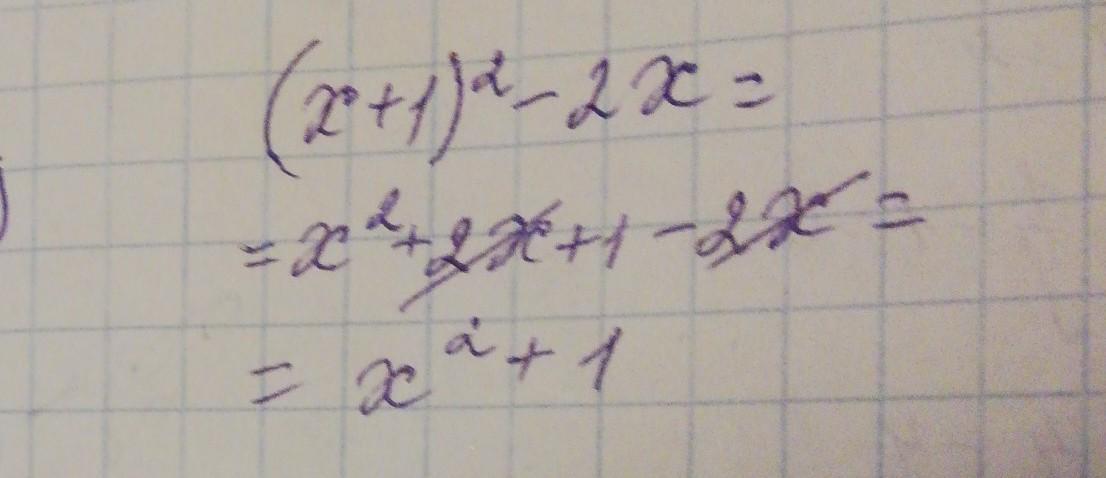 (x+1)²-2x=
=x²+2x+1-2x=
=x²+1